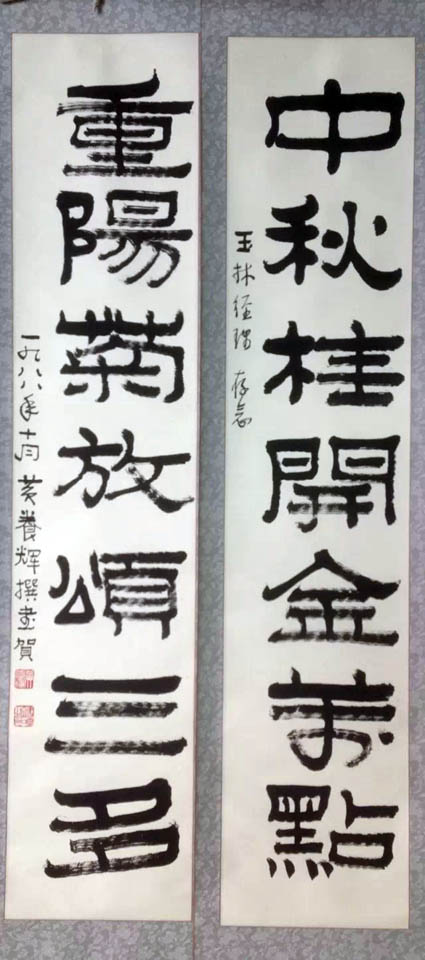 中秋桂開金萬點
玉林經理 存念
重陽菊放頌三多
一九八八年十月 黃養輝撰書賀